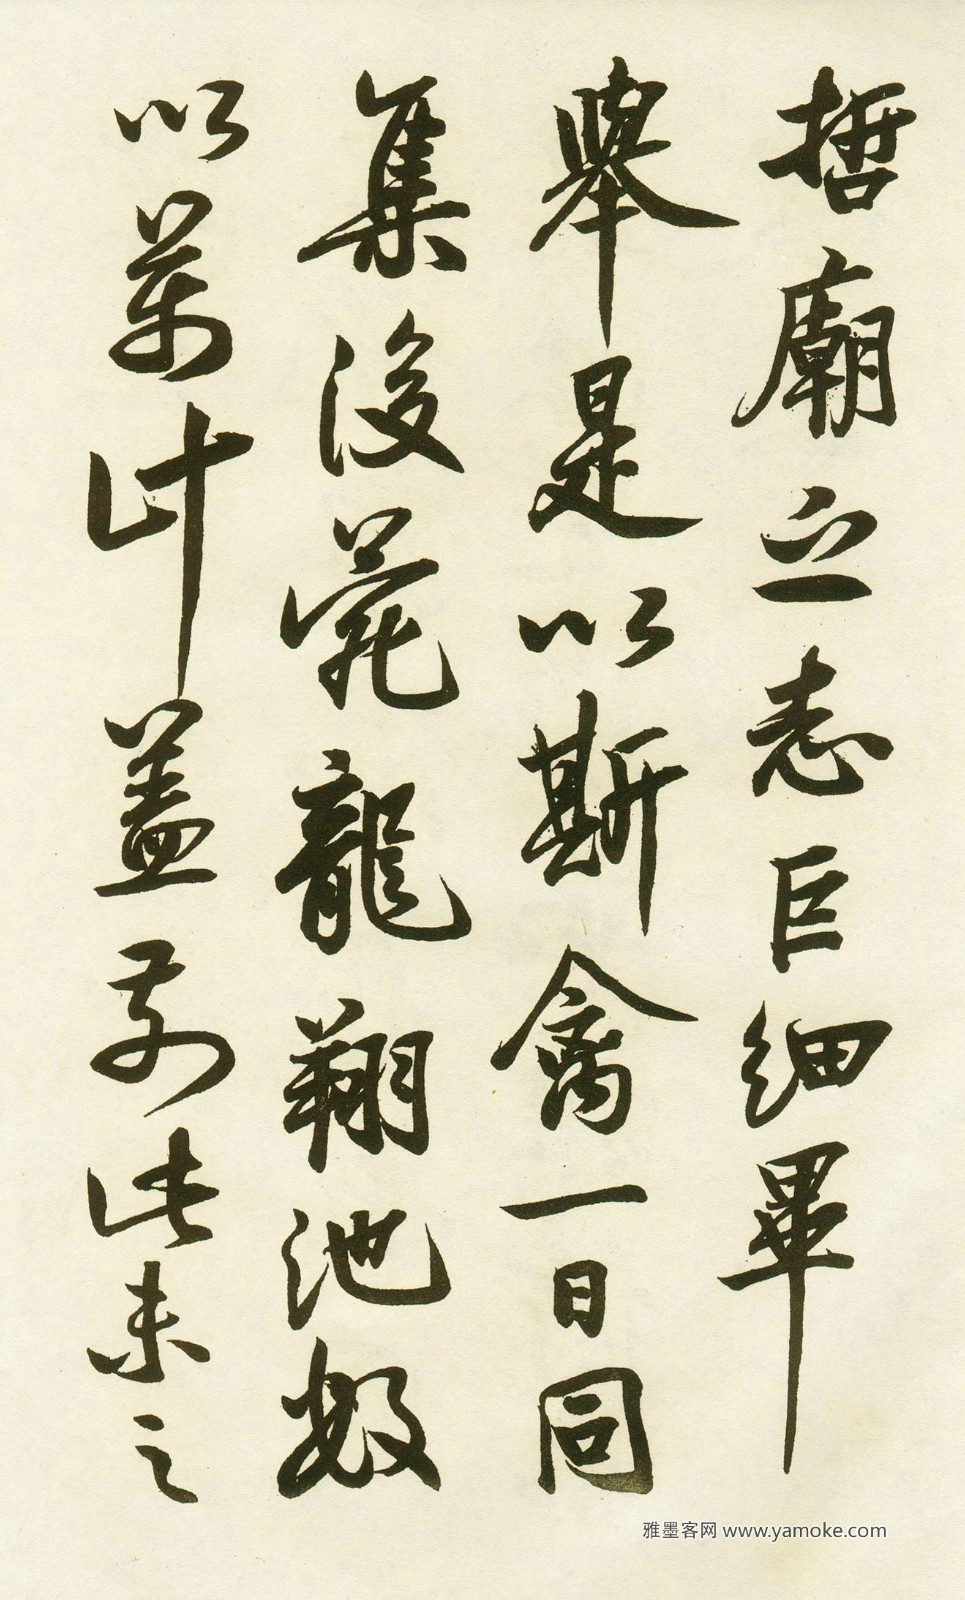 哲廟之志巨細畢
舉是以斯禽一日同
集後苑龍翔池數
以萬計蓋前此未之
雅墨客网 www.yamoke.com